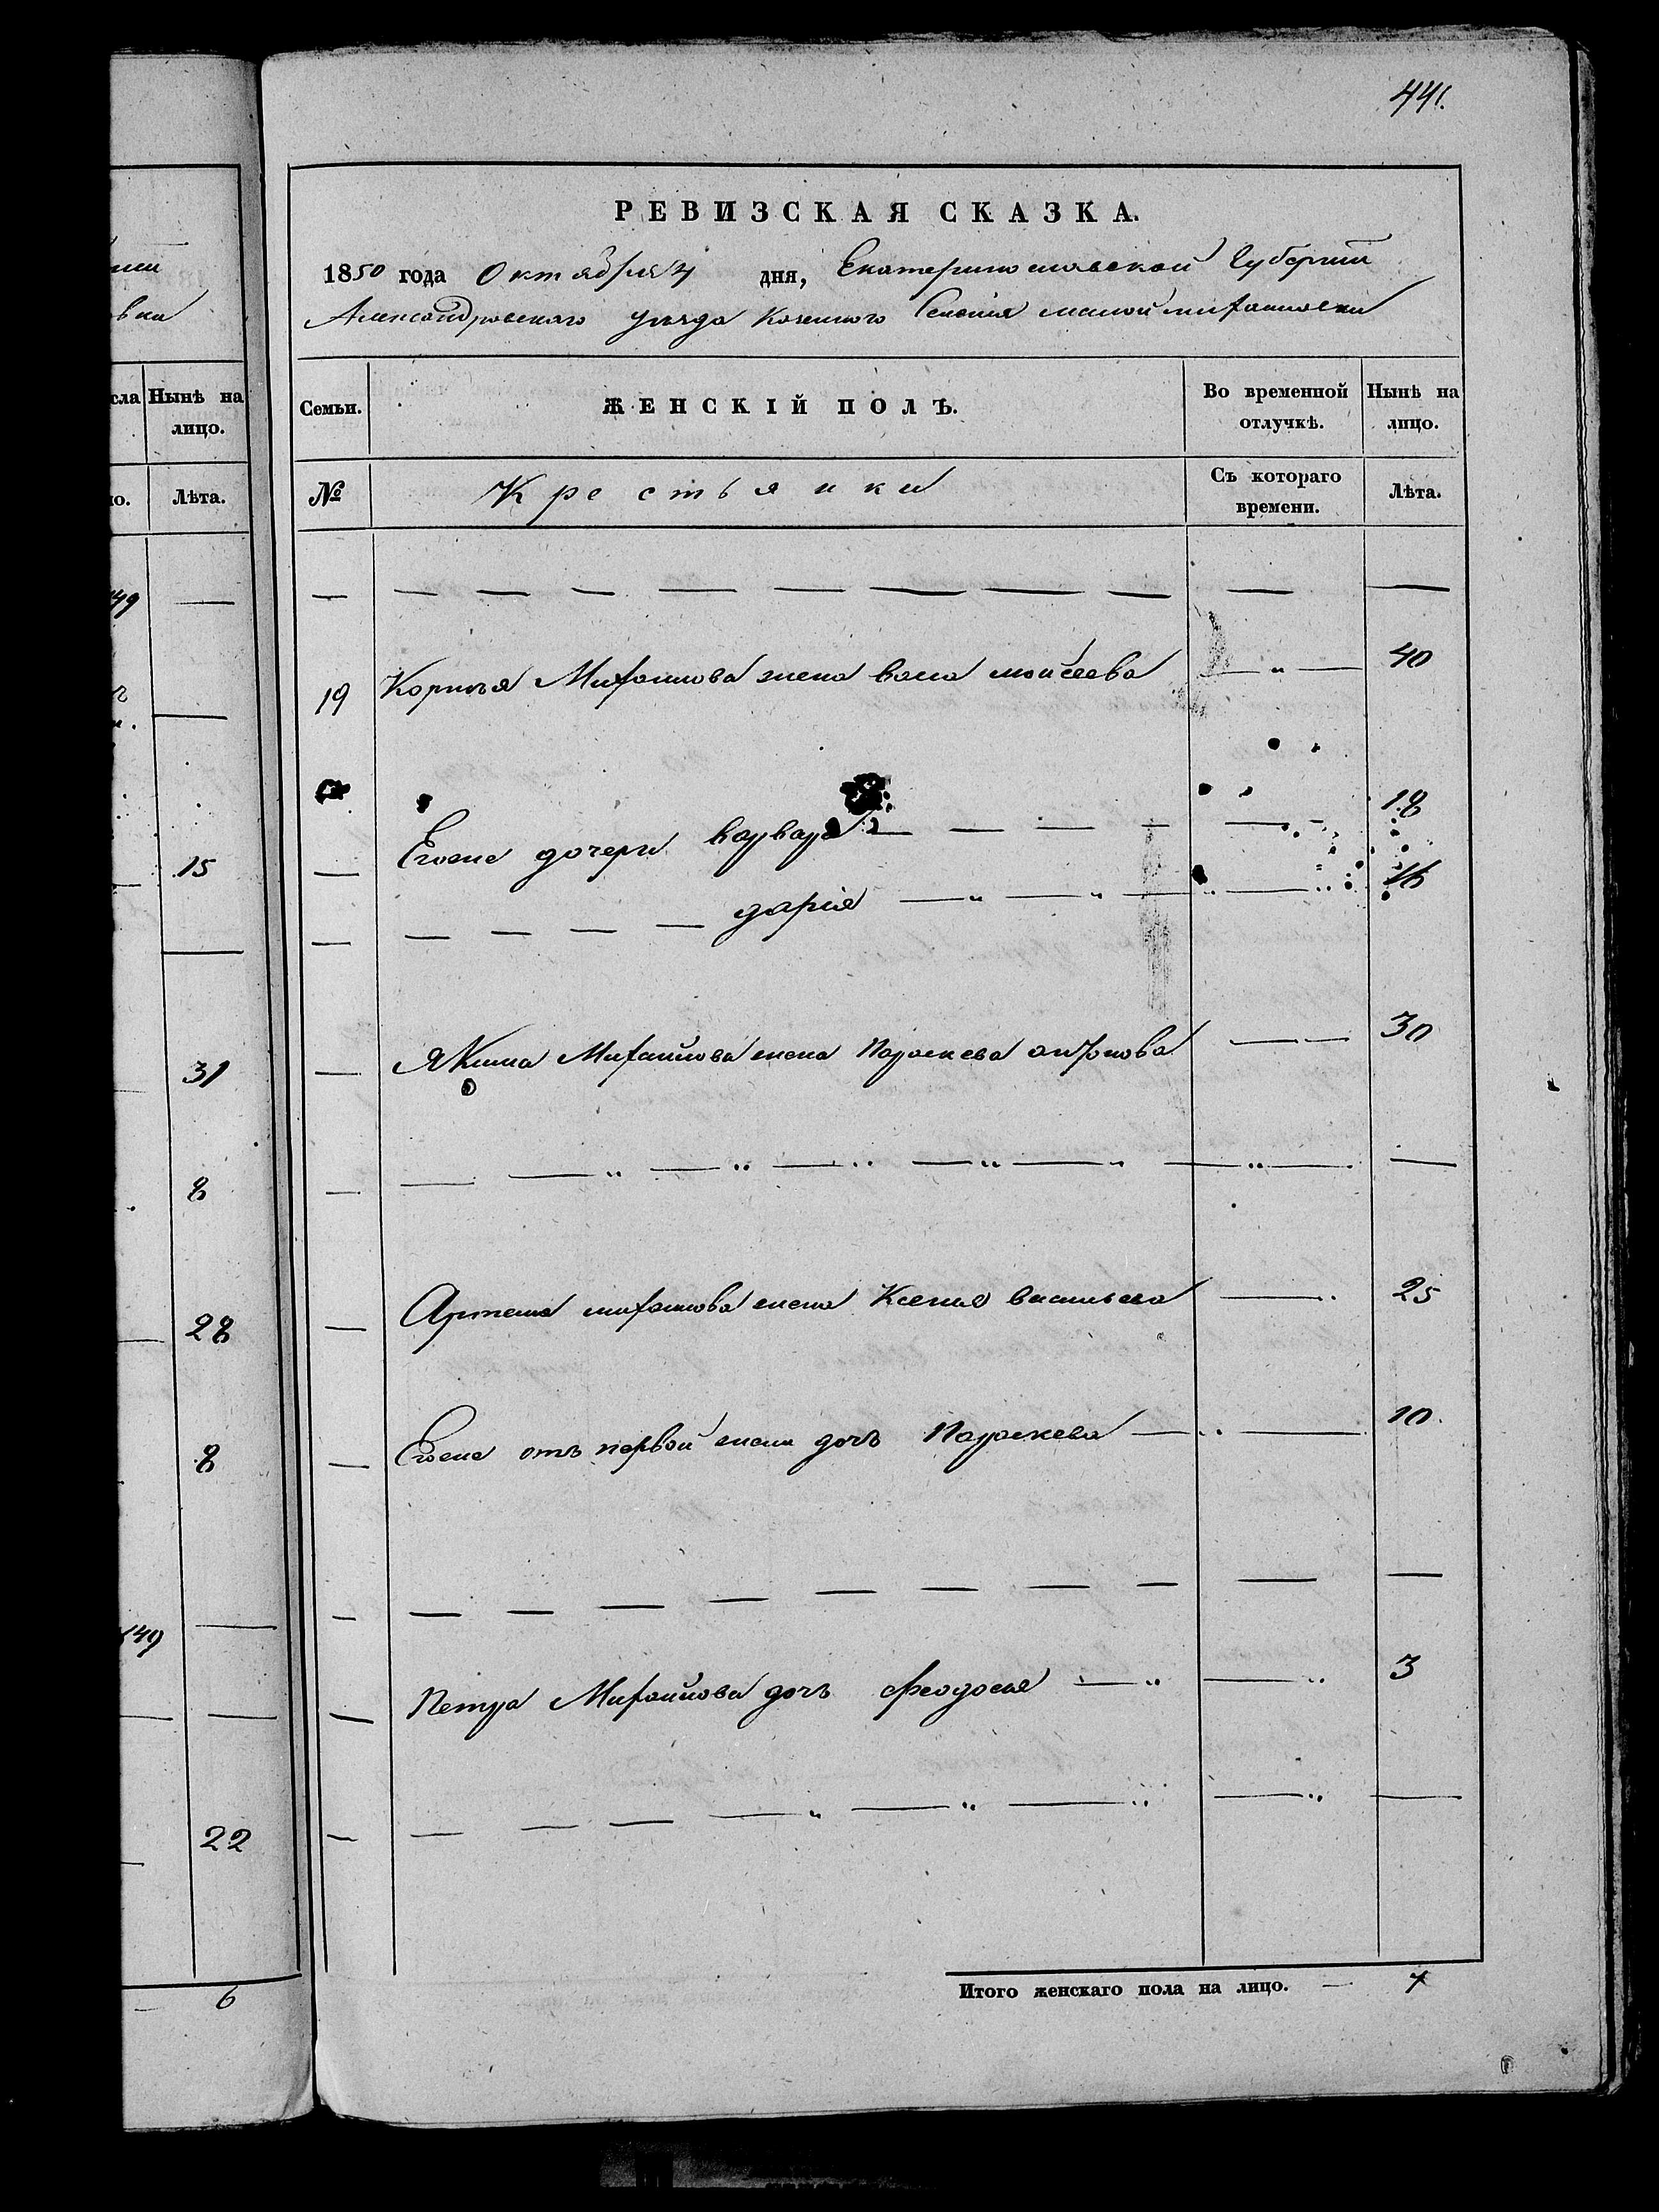 441.
РЕВИЗСКАЯ СКАЗКА.
1850 года Октября 4 дня, Екатеринославской Губернии
Александровского уезда Казенного Селения малой михайловки
вки
сла
Нынѣ на лицо.
Семьи.
ЖЕНСКІЙ ПОЛЪ.
Во временной отлучкѣ.
Нынѣ на лицо.
ло.
Лѣта.
№
Крестьянки
Съ котораго времени.
Лѣта.
49
19 Корнея Михайлова жена васа моисеева 40
15
Егоже дочери варвара 18
дарія 16
31
Якима Михайлова жена Параскева антонова 30
8
28
Артема михайлова жена Ксения васильева 25
8
Егоже отъ первой жены дочь Параскева 10
49
Петра Михайлова дочь феодосия 3
22
6
Итого женскаго пола на лицо. — 7